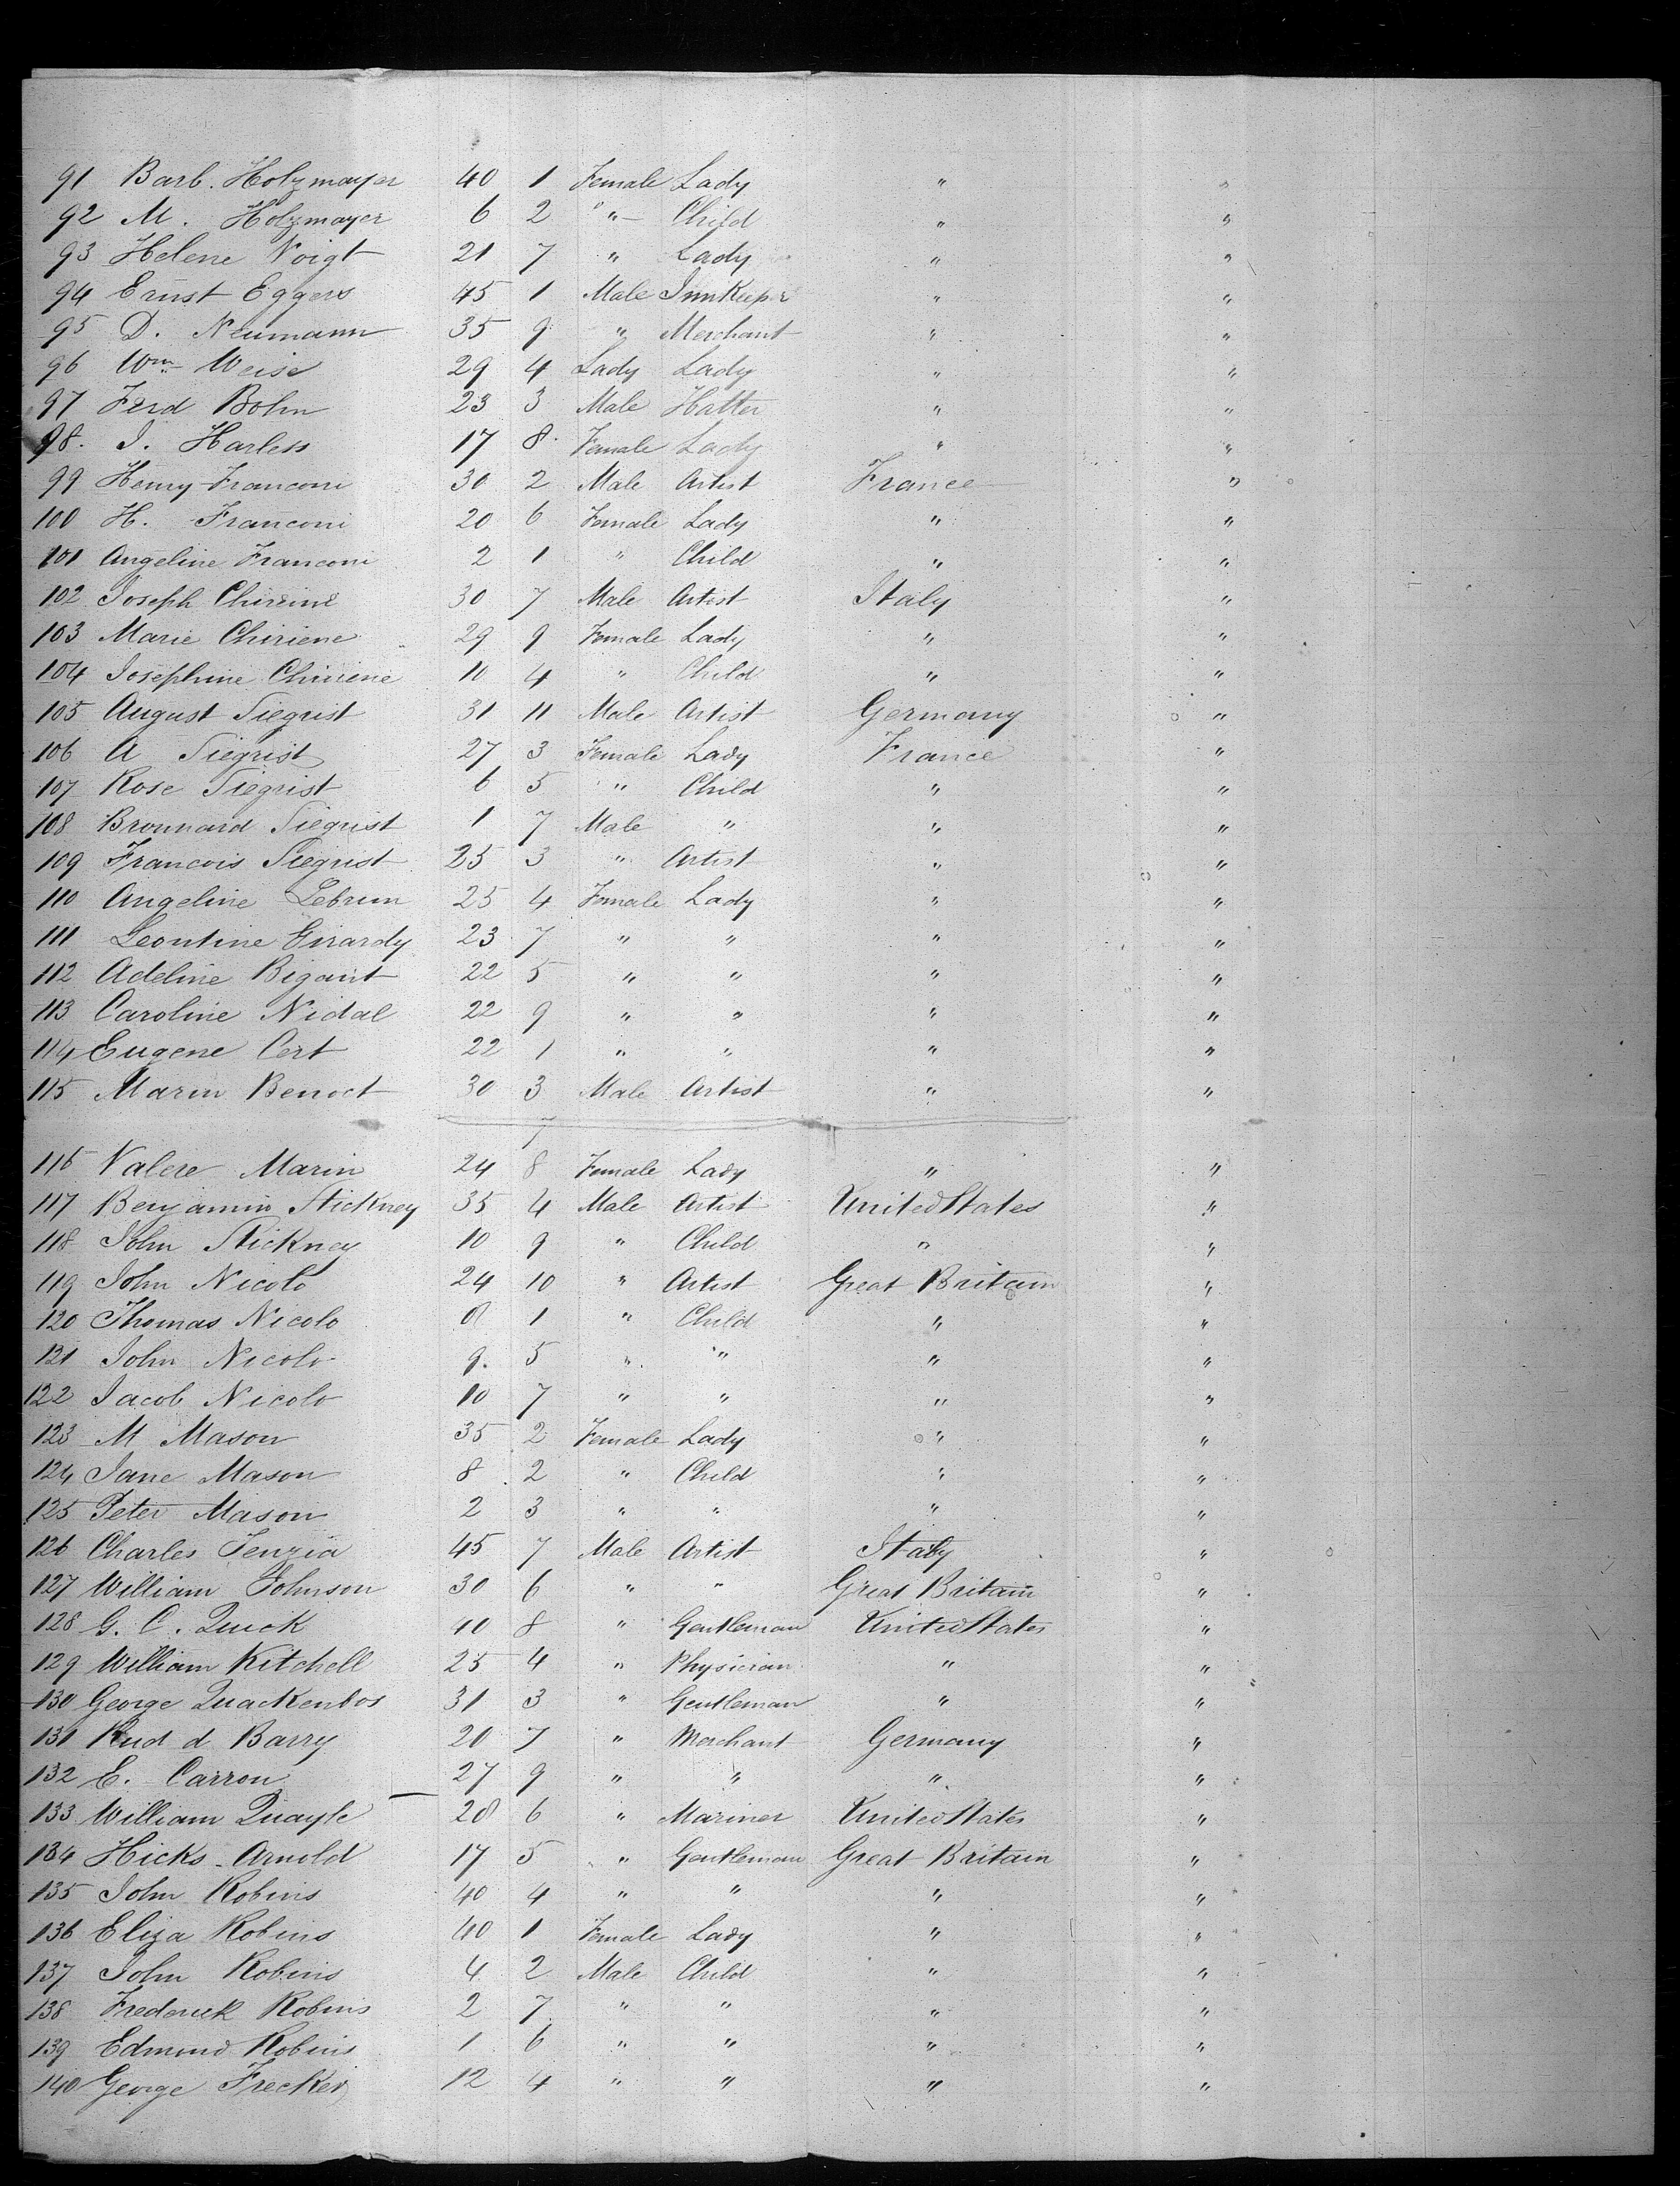 91 Barb. Holzmayer 40 1 Female Lady " "
92 M. Holzmayer 6 2 " Child " "
93 Helene Voigt 21 7 " Lady " "
94 Ernst Eggers 45 1 Male InnKeeper " "
95 D. Neumann 35 9 " Merchant " "
96 Wm Weise 29 4 Lady Lady " "
97 Ferd Bohn 23 3 Male Hatter " "
98. I. Harless 17 8 Female Lady " "
99 Henry Franconi 30 2 Male Artist France "
100 H. Franconi 20 6 Female Lady " "
101 Angeline Franconi 2 1 " Child " "
102 Joseph Chirine 30 7 Male Artist Italy "
103 Marie Chiriene 29 9 Female Lady " "
104 Josephine Chiriene 10 4 " Child " "
105 August Siegrist 31 11 Male Artist Germany "
106 A Siegrist 27 3 Female Lady France "
107 Rose Siegrist 6 5 " Child " "
108 Bronnard Siegrist 1 7 Male " " "
109 Francois Siegrist 25 3 " Artist " "
110 Angeline Lebrun 25 4 Female Lady " "
111 Leontine Girardy 23 7 " " " "
112 Adeline Bigant 22 5 " " " "
113 Caroline Nidal 22 9 " " " "
114 Eugene Cert 22 1 " " " "
115 Marin Benoct 30 3 Male Artist " "
7
116 Valere Marin 24 8 Female Lady " "
117 Benjamin Stickney 35 4 Male Artist United States "
118 John Stickney 10 9 " Child " "
119 John Nicolo 24 10 " Artist Great Britain "
120 Thomas Nicolo 8 1 " Child " "
121 John Nicolo 9. 5 " " " "
122 Jacob Nicolo 10 7 " " " "
123 M Mason 35 2 Female Lady " "
124 Jane Mason 8 2 " Child " "
125 Peter Mason 2 3 " " " "
126 Charles Fenzia 45 7 Male Artist Italy "
127 William Johnson 30 6 " " Great Britain "
128 G. C. Quick 40 8 " Gentleman United States "
129 William Kitchell 25 4 " Physician " "
130 George Quackenbos 31 3 " Gentleman " "
131 Rud d Barry 20 7 " Merchant Germany "
132 E. Carron 27 9 " " " "
133 William Quayle 28 6 " Mariner United States "
134 Hicks Arnold 17 5 " Gentleman Great Britain "
135 John Robins 40 4 " " " "
136 Eliza Robins 40 1 Female Lady " "
137 John Robins 4 2 Male Child " "
138 Frederick Robins 2 7 " " " "
139 Edmond Robins 1 6 " " " "
140 George Frecker 12 4 " " " "